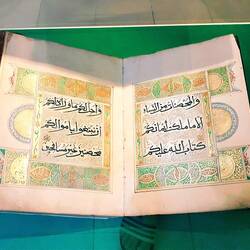 والمحصنات من النساء
الا ما ملكت ايمانكم
كتاب الله عليكم
واحل لكم ما وراء ذلكم
ان تبتغوا باموالكم
محصنين غير مسافحين